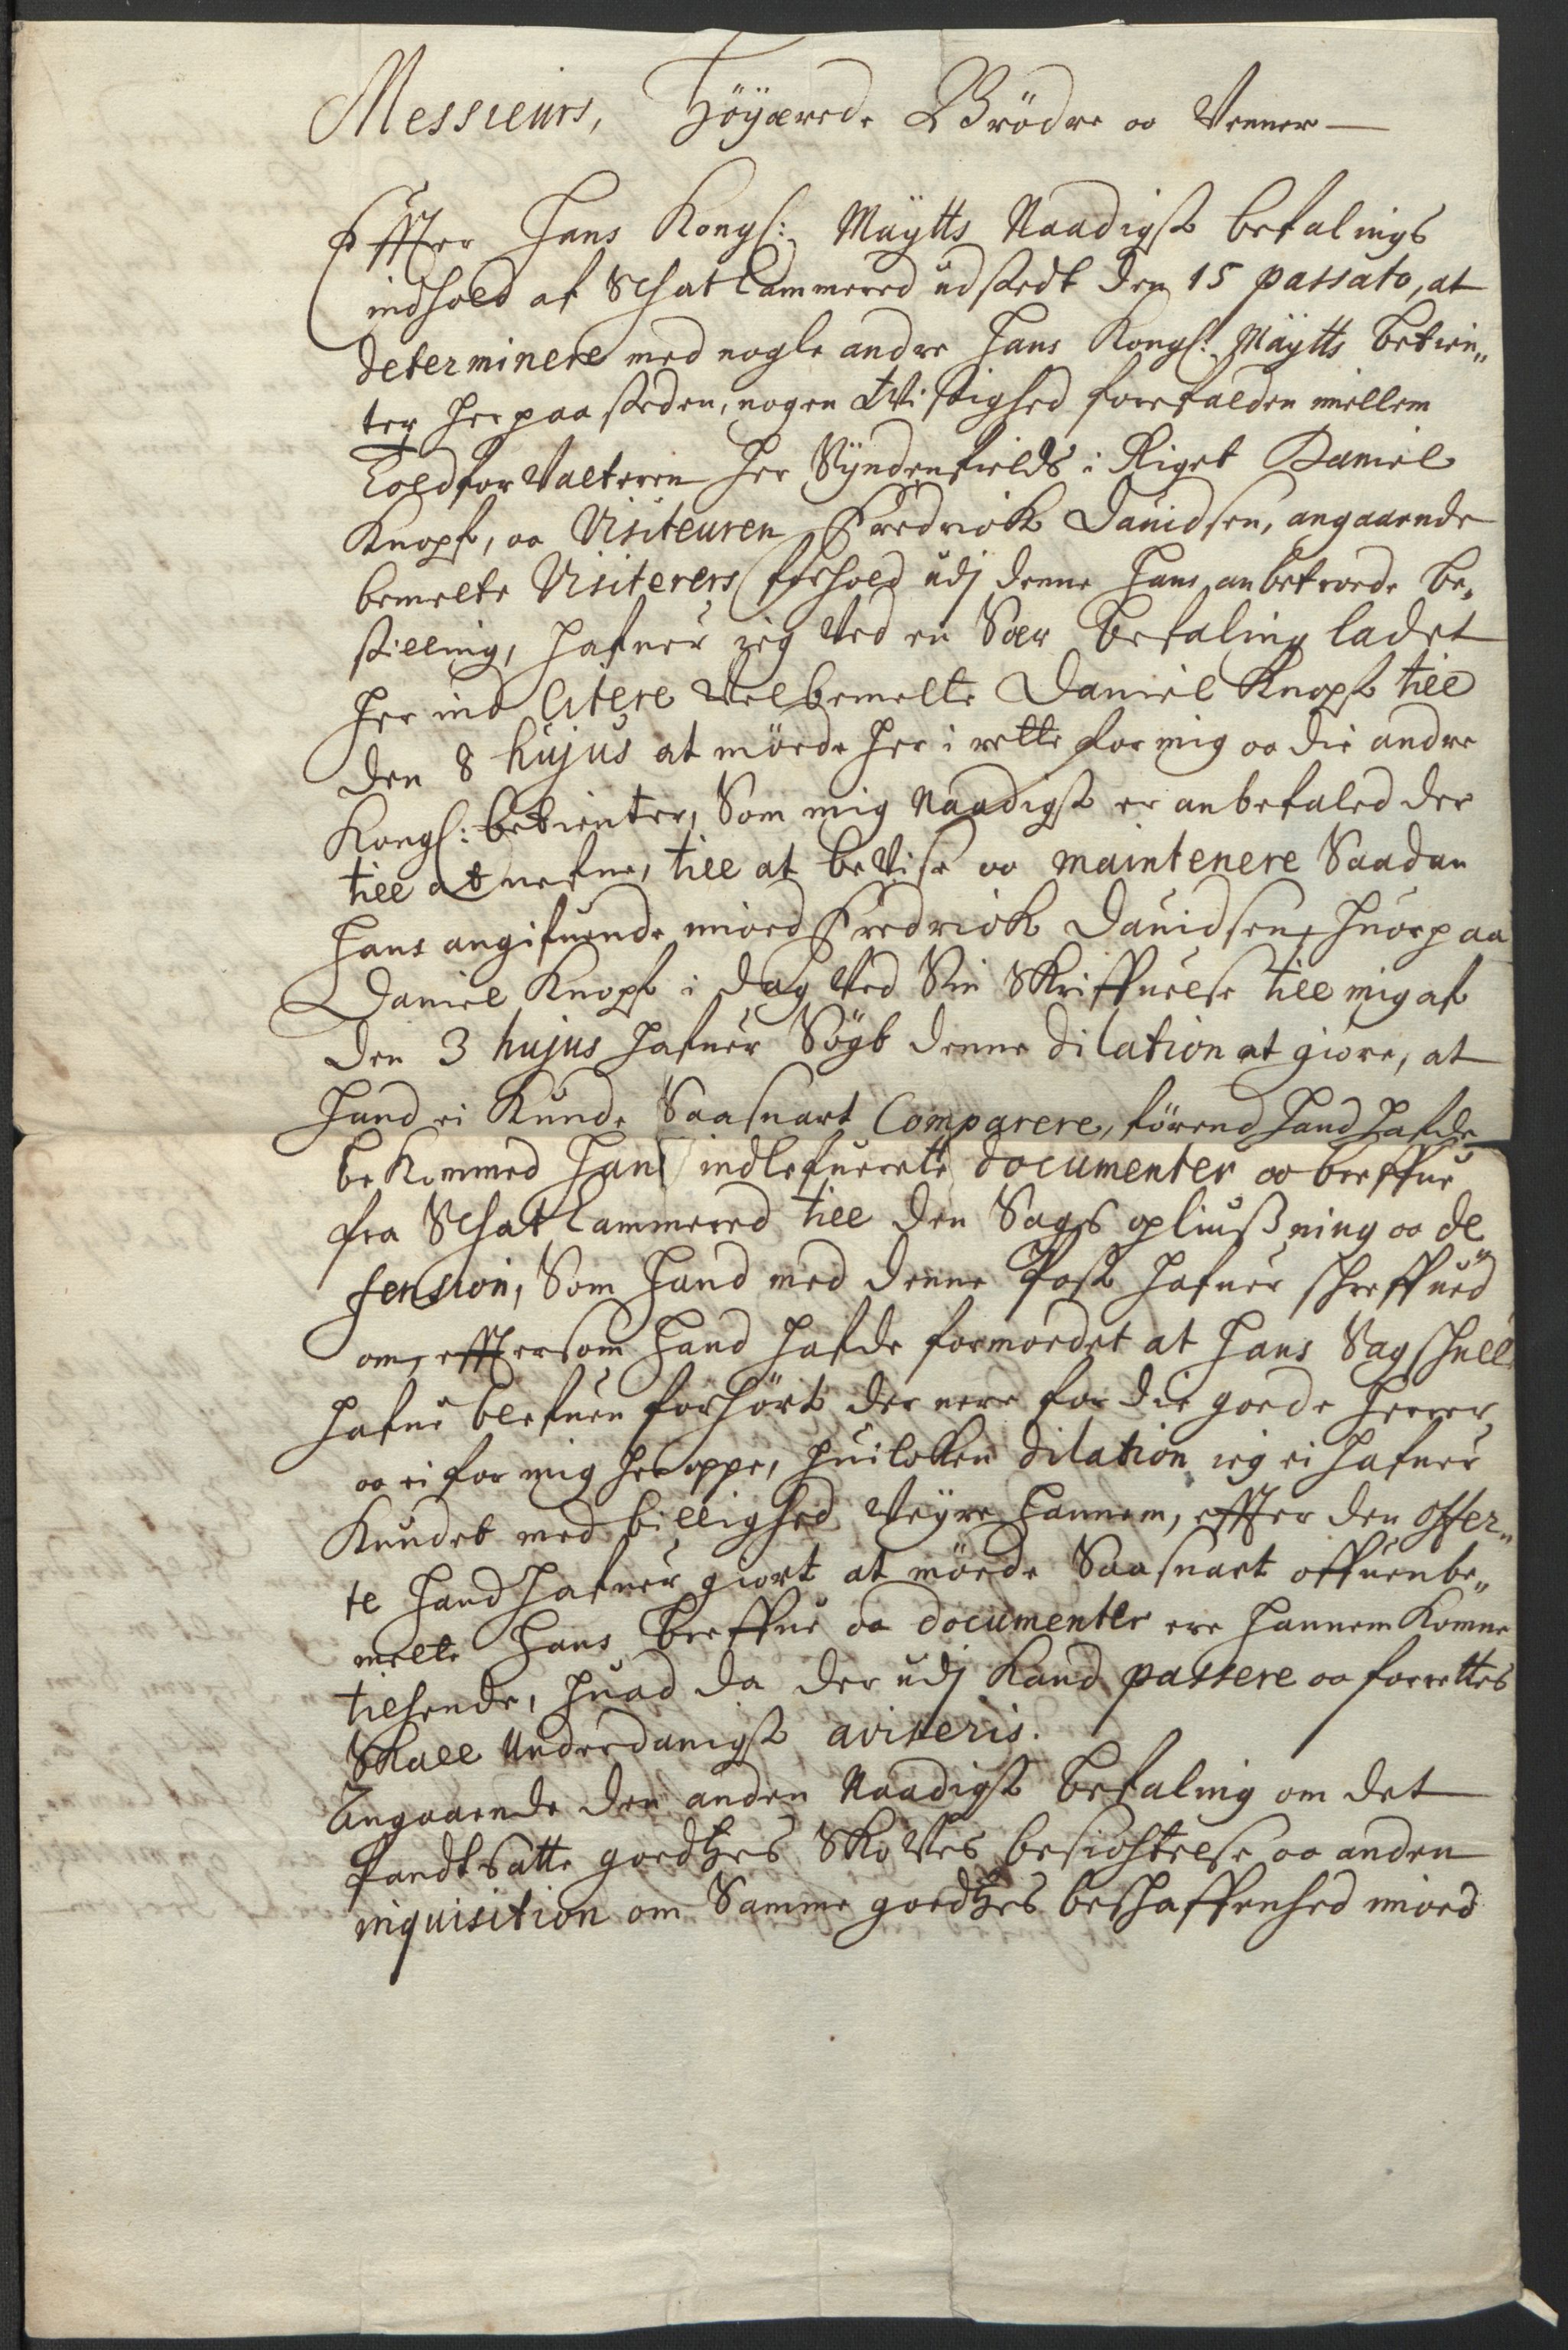 Messieurs, Höÿærede Brödre oc Venner
Effter Hans Kongl: Maÿtts Naadigst befalings
indhold af Schatcammered udstedt den 15 passato, at
determinere med nogle andre Hans Kongl: Maÿtts betien„
ter her paa steden, nogen twistighed forefalden mellem
Toldforvalteren her Sÿndenfields i Riget Daniel
Knopf, oc Visiteuren Fredrick Davidsen, angaaende
bemelte Visiterers forhold udj denne hans anbetroede be„
stilling, hafuer ieg ved en Vaer befaling ladet
her ind citere velbemelte Daniel Knopf till
den 8 hujus at möede her i rette for mig oc die andre
Kongl: betienter, Som mig Naadigst er anbefaled der
till at nefne, till at bevise oc maintenere Saadan
hans angifuende imoed Fredrick Davidsen, huorpaa
Daniel Knopf i dag ved Sin Skriffuelse till mig af
den 3 hujus hafuer Sögt denne dilation at giöre, at
hand ei kunde Saasnart Comparere, förend hand hafde
bekommed hans indlefuerete documenter oc breffue
fra Schatcammered till den Sags opliusning oc de„
fension, Som hand med denne Post hafuer schreffued
om, efftersom hand hafde formoedet at hans Sag schulle
hafue blefuen forhört der nere for die goede herrer,
oc ei for mig her oppe, huilcken dilation ieg ei hafuer
kundet med billighed veÿre hannem, effter den offer„
te hand hafuer giort at möede Saasnart offuenbe„
melte hans breffue oc documenter ere hannem komne
tilhende, huad da der udj kand passere oc forrettes
Skall underdanigst aviseris.
Angaaende den anden Naadigst befaling om det
Pandtsatte goedtzes Skoves besichtelse oc anden
inquisition om Samme goedtzes beschaffenhed imoed